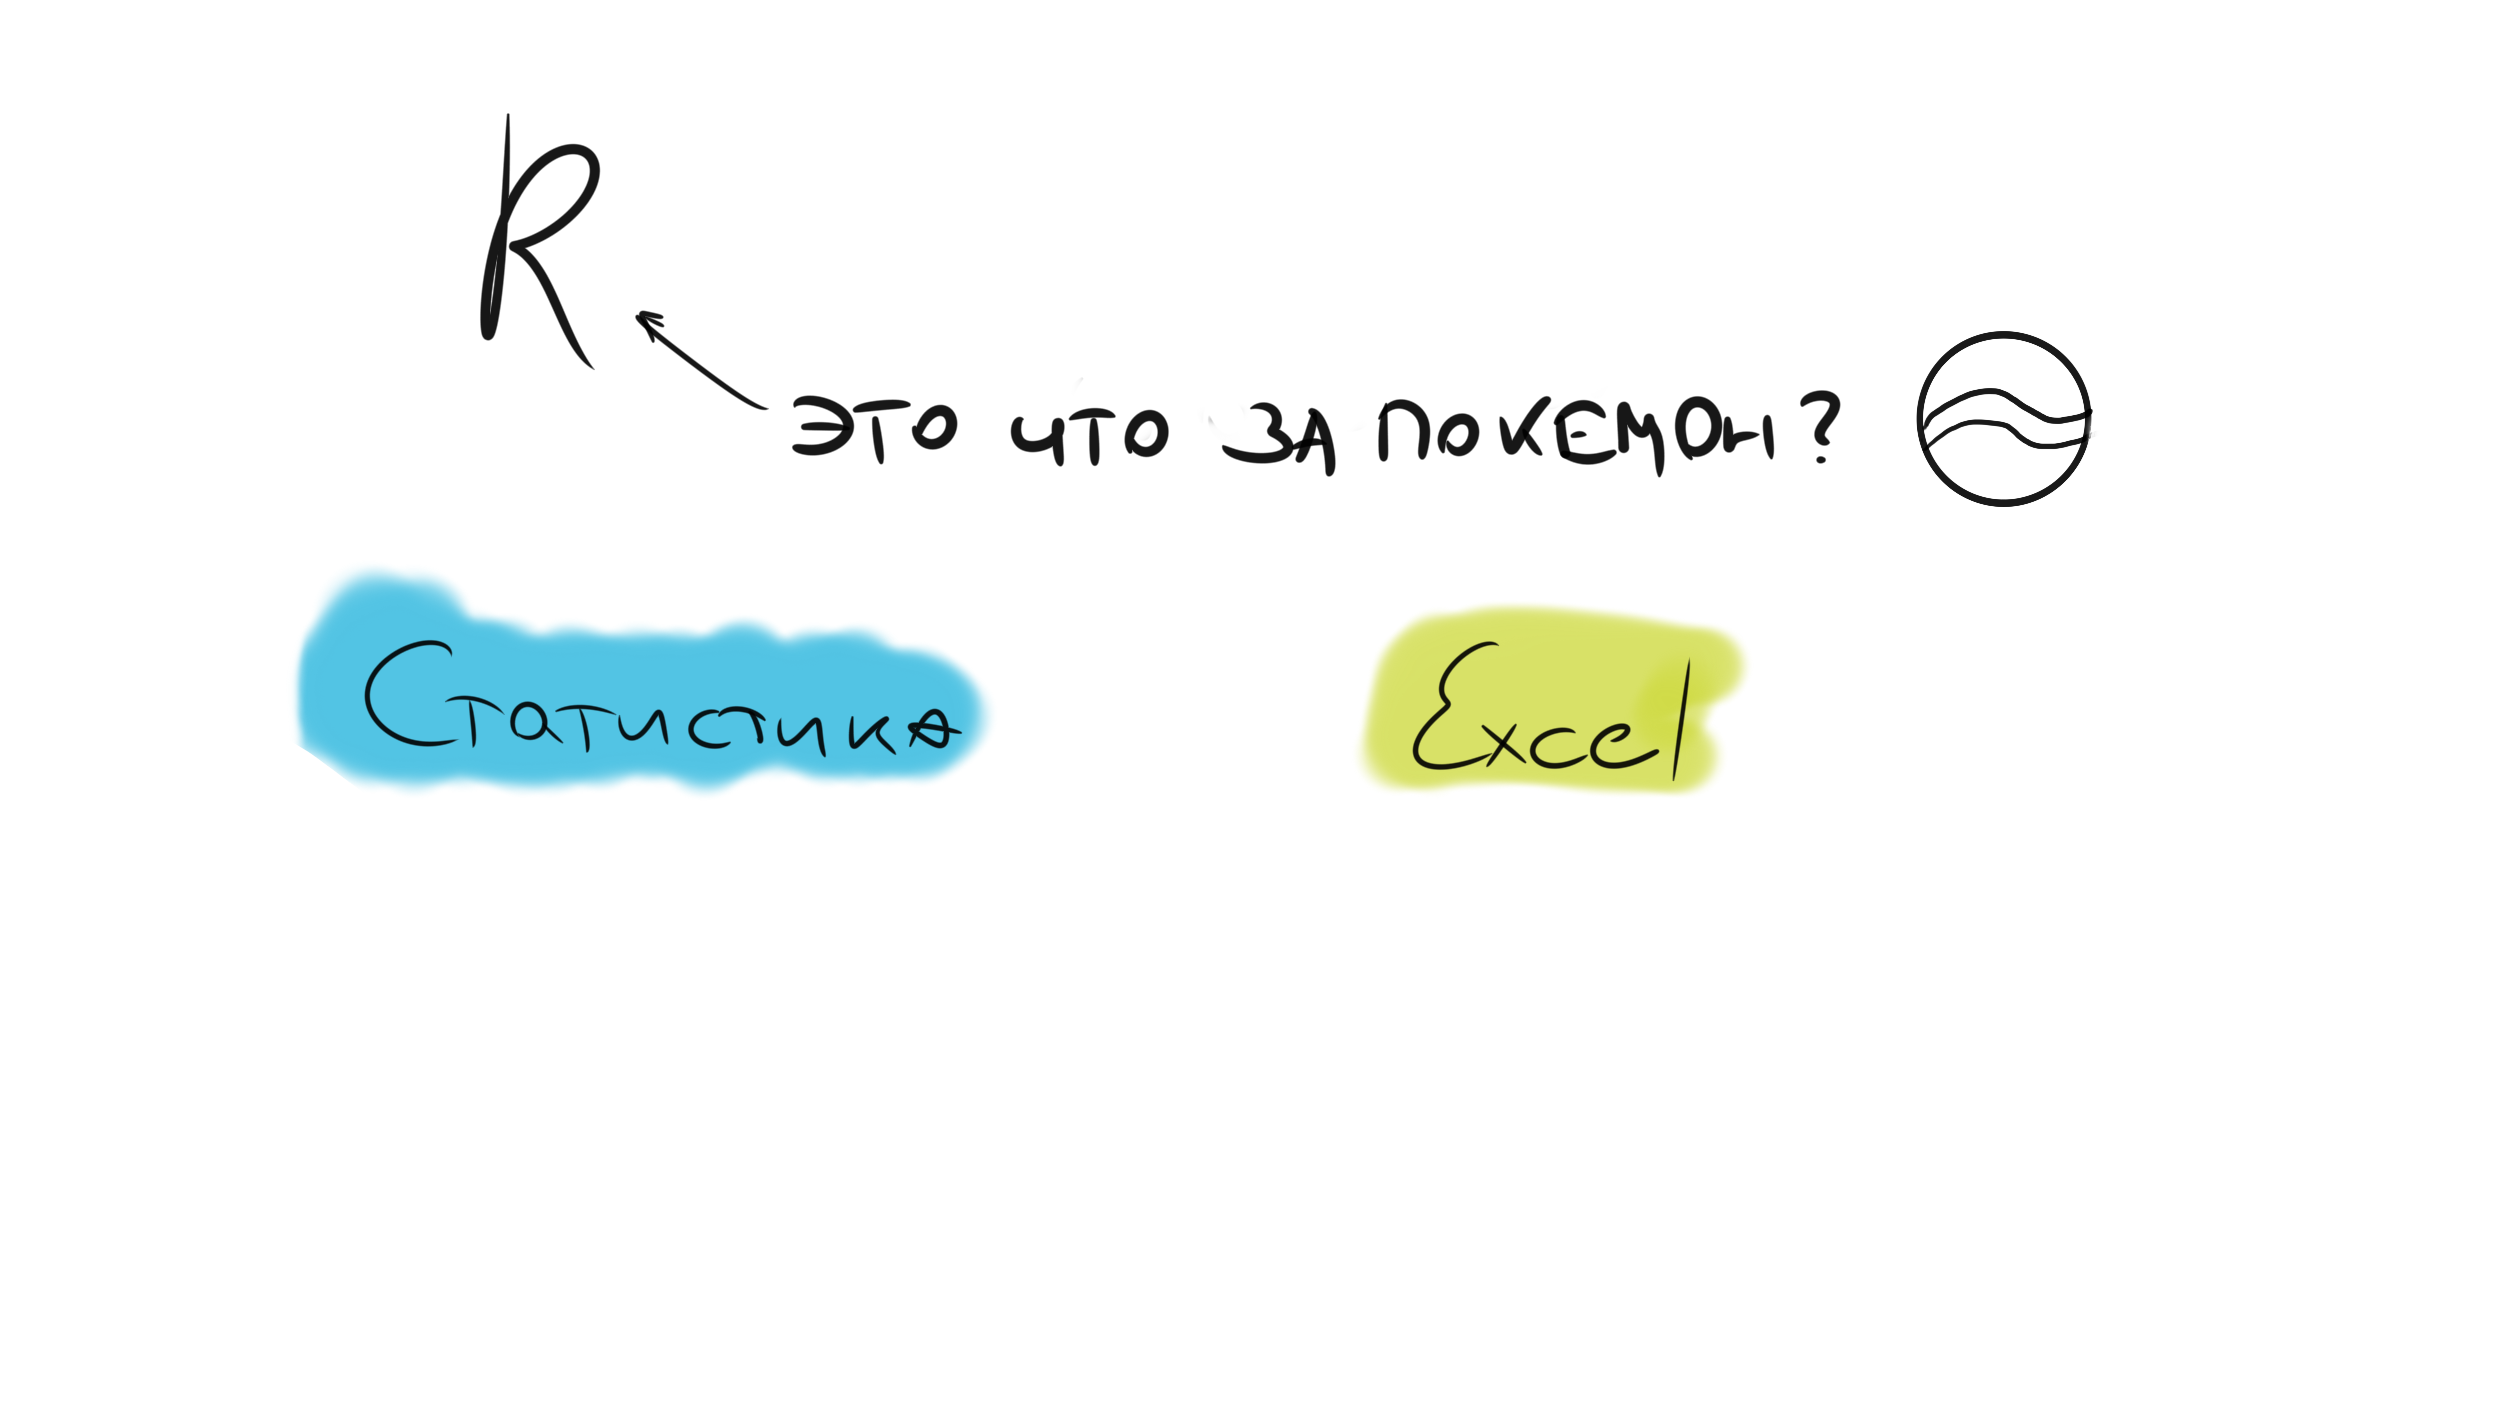 R
ЭТО ЧТО ЗА ПОКЕМОН?
Статистика
Excel